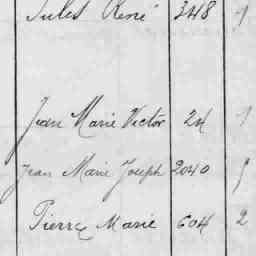 Jules René 348
Jean Marie Victor 24
Jean Marie Joseph 2040
Pierre Marie 604 2